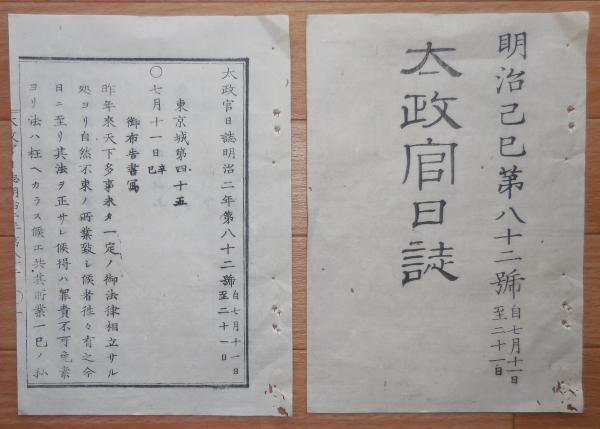 明治己巳第八十二號 自七月十一日 至二十一日
太政官日誌
太政官日誌明治二年第八十二號 自七月十一日 至二十一日
東京城第四十五
〇七月十一日 辛巳
御布告書寫
昨年來天下多事未タ一定ノ御法律相立サル
處ヨリ自然不束ノ所業致シ候者往々有之今
日ニ至リ其法ヲ正サレ候得ハ罪責不可免素
ヨリ法ハ枉ヘカラス候エ共其所業一已ノ私